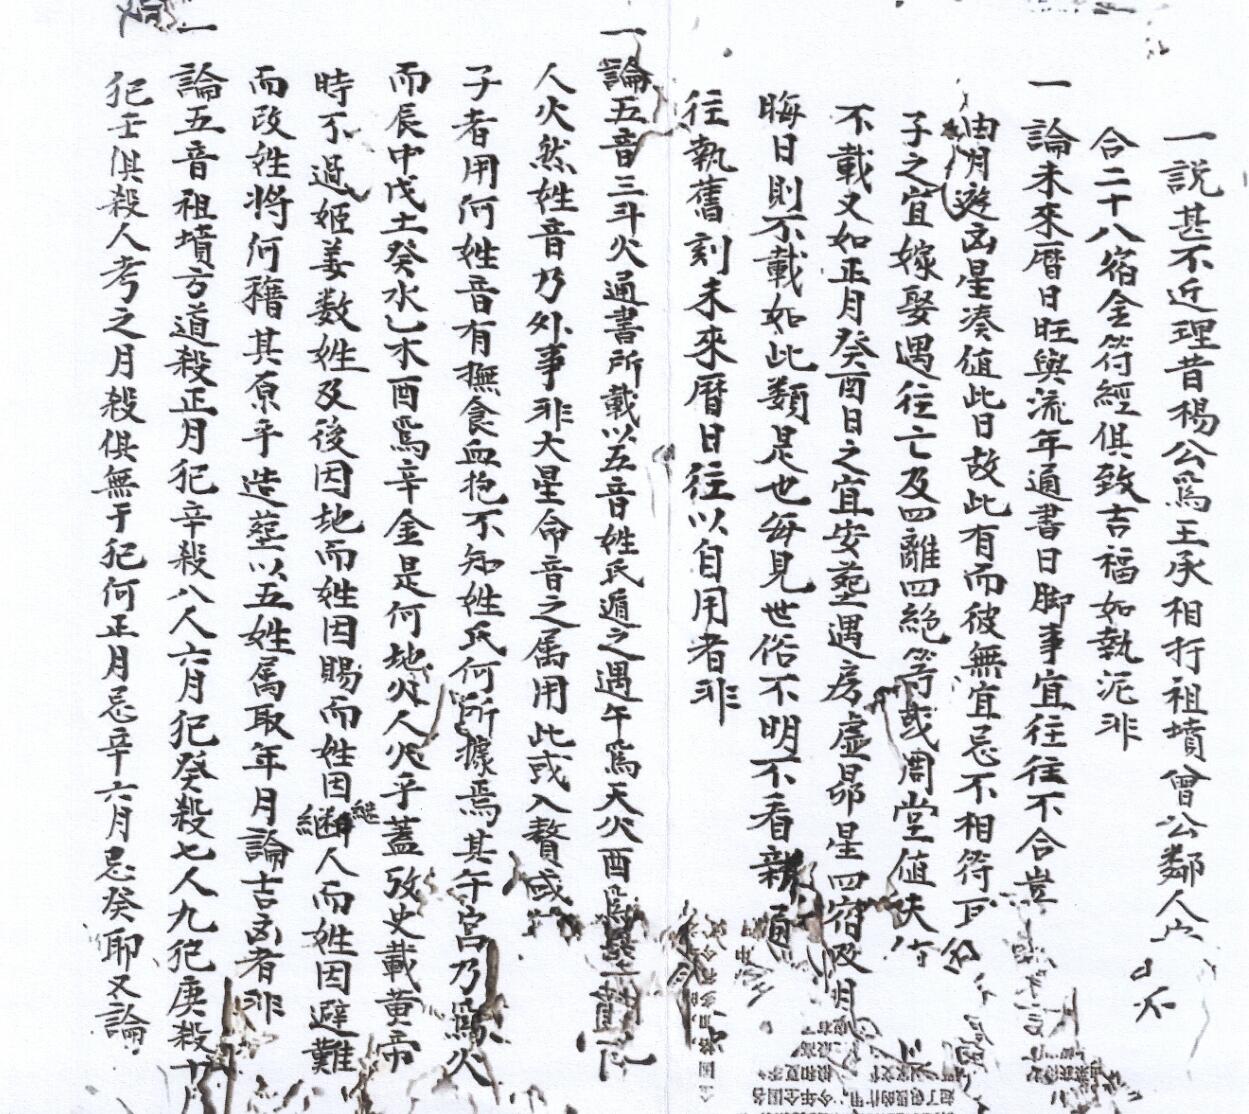 一說甚不近理昔楊公爲王丞相行祖墳曾公鄰人
不
合二十八宿金符經俱致吉福如執泥非
一論未來曆日旺與流年通書日脚事宜往往不合豈
由月遊凶星湊值此日故此有而彼無宜忌不相符
子之宜嫁娶遇往亡及四離四絕等或周堂值夫
不載又如正月癸酉日之宜安葬遇房虛昴星四宿及月
晦日則不載如此類是也每見世俗不明不看新通
往執舊刻未來曆日往以自用者非
一論五音三斗火通書所載以五音姓氏遁之遇午爲天火酉
人火然姓音乃外事非大星命音之属用此或入贅或
子者用何姓音有撫食血抱不知姓氏何所據焉其午宮乃爲火
而辰中戊土癸水乙木酉爲辛金是何地火人火乎蓋攷史載黃帝
時不過姬姜數姓及後因地而姓因賜而姓因繼人而姓因避難
而改姓將何稽其原乎造塟以五姓属取年月論吉凶者非
一論五音祖墳方道殺正月犯辛殺八人六月犯癸殺七人九犯庚殺十
犯壬俱殺人考之月殺俱無于犯何正月忌辛六月忌癸耶又論